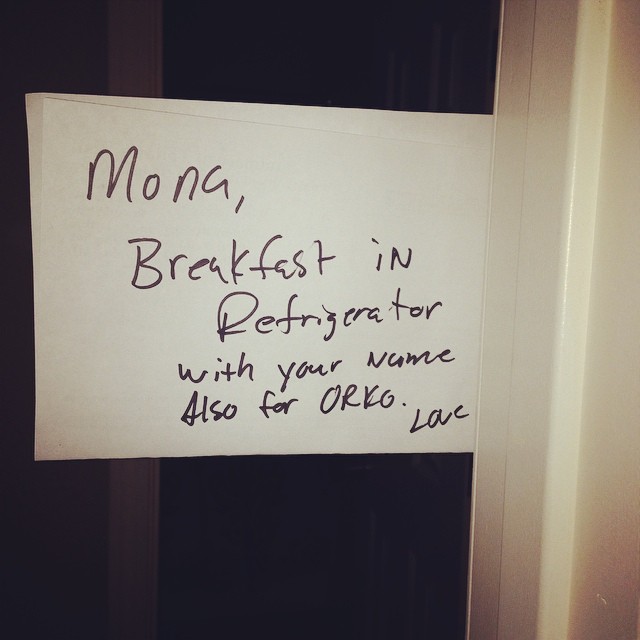 Mona,
Breakfast in
Refrigerator
with your name
Also for ORKO.
Love